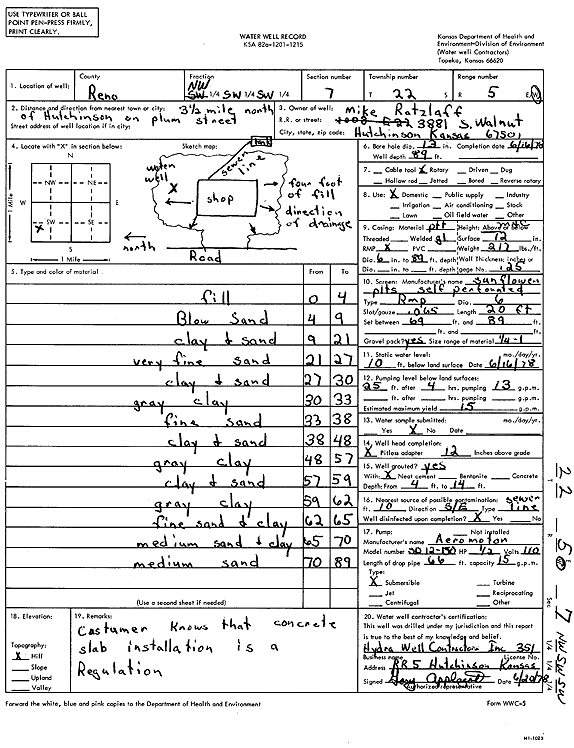 USE TYPEWRITER OR BALL
POINT PEN-PRESS FIRMLY,
PRINT CLEARLY.
WATER WELL RECORD
KSA 82a-1201-1215
Kansas Department of Health and
Environment-Division of Environment
(Water well Contractors)
Topeka, Kansas 66620
1. Location of well:
County
Reno
Fraction
NW
SW 1/4 SW 1/4 SW 1/4
Section number
7
Township number
T 22 S
Range number
R 5 E/W
2. Distance and direction from nearest town or city: 3½ mile north
of Hutchinson on plum street
Street address of well location if in city:
3. Owner of well: Mike Ratzlaff
R.R. or street: 3881 S. Walnut
City, state, zip code: Hutchinson Kansas 67501
4. Locate with "X" in section below:
N
NW NE
W E
SW SE
X
S
1 Mile
1 Mile
Sketch map:
tank
sewer line
water well
X
shop
four foot of fill
direction of drainage
north
Road
5. Type and color of material From To
fill 0 4
Blow Sand 4 9
clay & sand 9 21
very fine sand 21 27
clay & sand 27 30
gray clay 30 33
fine sand 33 38
clay & sand 38 48
gray clay 48 57
clay & sand 57 59
gray clay 59 62
fine sand & clay 62 65
medium sand & clay 65 70
medium sand 70 89
(Use a second sheet if needed)
6. Bore hole dia. 13 in. Completion date 6/16/78
Well depth 89 ft.
7. Cable tool X Rotary Driven Dug
Hollow rod Jetted Bored Reverse rotary
8. Use: X Domestic Public supply Industry
Irrigation Air conditioning Stock
Lawn Oil field water Other
9. Casing: Material Height: Above or below
Threaded Welded gl Surface 12 in.
RMP X PVC Weight lbs./ft.
Dia. 6 in. to 89 ft. depth Wall Thickness: inches or
Dia. in. to ft. depth gage No. .125
10. Screen: Manufacturer's name Sunflower
plts self perforated
Type Rmp Dia. 6
Slot/gauze .065 Length 20 ft
Set between 69 ft. and 89 ft.
ft. and ft.
Gravel pack? yes Size range of material ¼-1
11. Static water level: mo./day/yr.
10 ft. below land surface Date 6/16/78
12. Pumping level below land surfaces:
25 ft. after 4 hrs. pumping 13 g.p.m.
ft. after hrs. pumping g.p.m.
Estimated maximum yield 15 g.p.m.
13. Water sample submitted: mo./day/yr.
Yes X No Date
14. Well head completion:
X Pitless adapter 12 Inches above grade
15. Well grouted? yes
With: X Neat cement Bentonite Concrete
Depth: From 4 ft. to 14 ft.
16. Nearest source of possible contamination: sewer
ft. 10 Direction S/E Type line
Well disinfected upon completion? X Yes No
17. Pump: Not installed
Manufacturer's name Aeromotor
Model number HP ½ Volts 110
Length of drop pipe 66 ft. capacity 15 g.p.m.
Type:
X Submersible Turbine
Jet Reciprocating
Centrifugal Other
18. Elevation:
Topography:
X Hill
Slope
Upland
Valley
19. Remarks:
Costumer Knows that concrete
slab installation is a
Regulation
20. Water well contractor's certification:
This well was drilled under my jurisdiction and this report
is true to the best of my knowledge and belief.
Hydra Well Contractors Inc 351
Business name License No.
Address RR5 Hutchinson Kansas
Signed 6/20/78
Authorized representative
Forward the white, blue and pink copies to the Department of Health and Environment
Form WWC-5
T 22
5
Sec. 7
NW SW SW
1/4 1/4 1/4